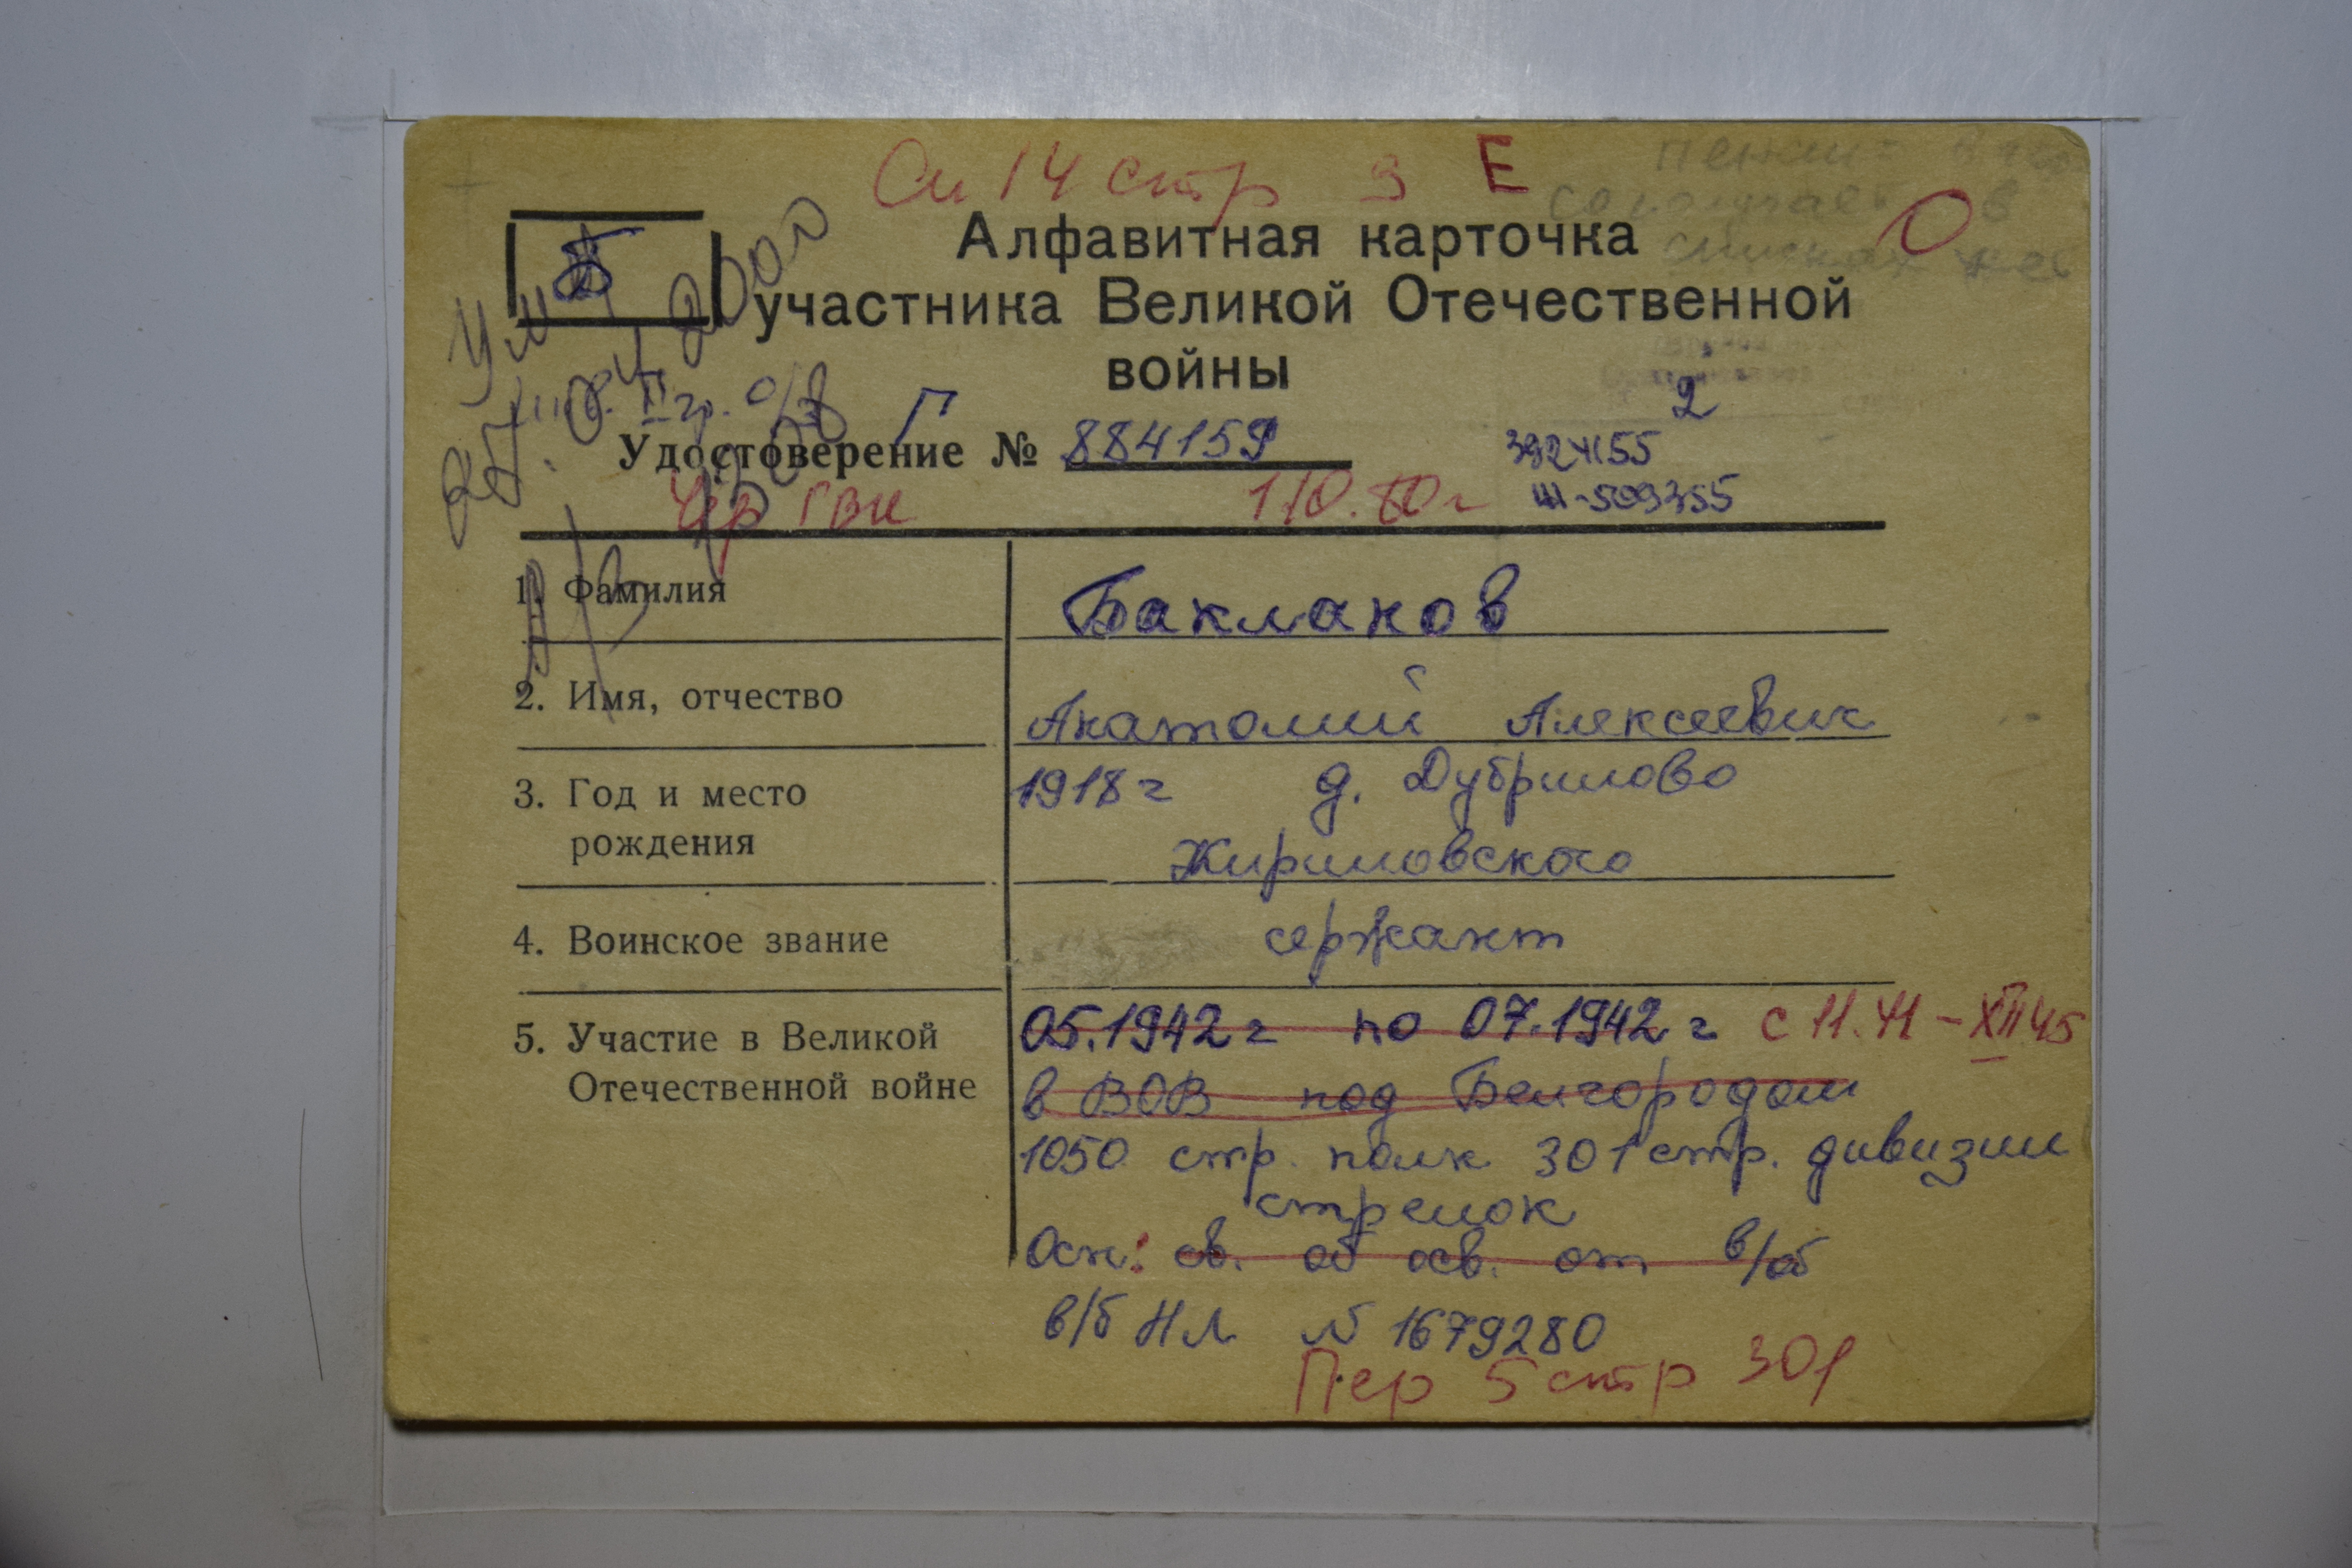 Сп 14 стр 9 Е
О
Б
Алфавитная карточка
участника Великой Отечественной
войны
Ум
2001
II гр. о/з
Г
2
Удостоверение № 884159
3924155
509355
Чер ГВК 1.10.80 г
1. Фамилия Бакланов
2. Имя, отчество Анатолий Алексеевич
3. Год и место 1918 г д. Дубрилово
рождения Кириловского
4. Воинское звание сержант
5. Участие в Великой 05.1942 г по 07.1942 г с 11.41 – XII 45
Отечественной войне в ВОВ под Белгородом
1050 стр. полк 301 стр. дивизии
стрелок
Осн: св. об осв. от в/об
в/б НЛ № 1679280
Пер 5 стр 301